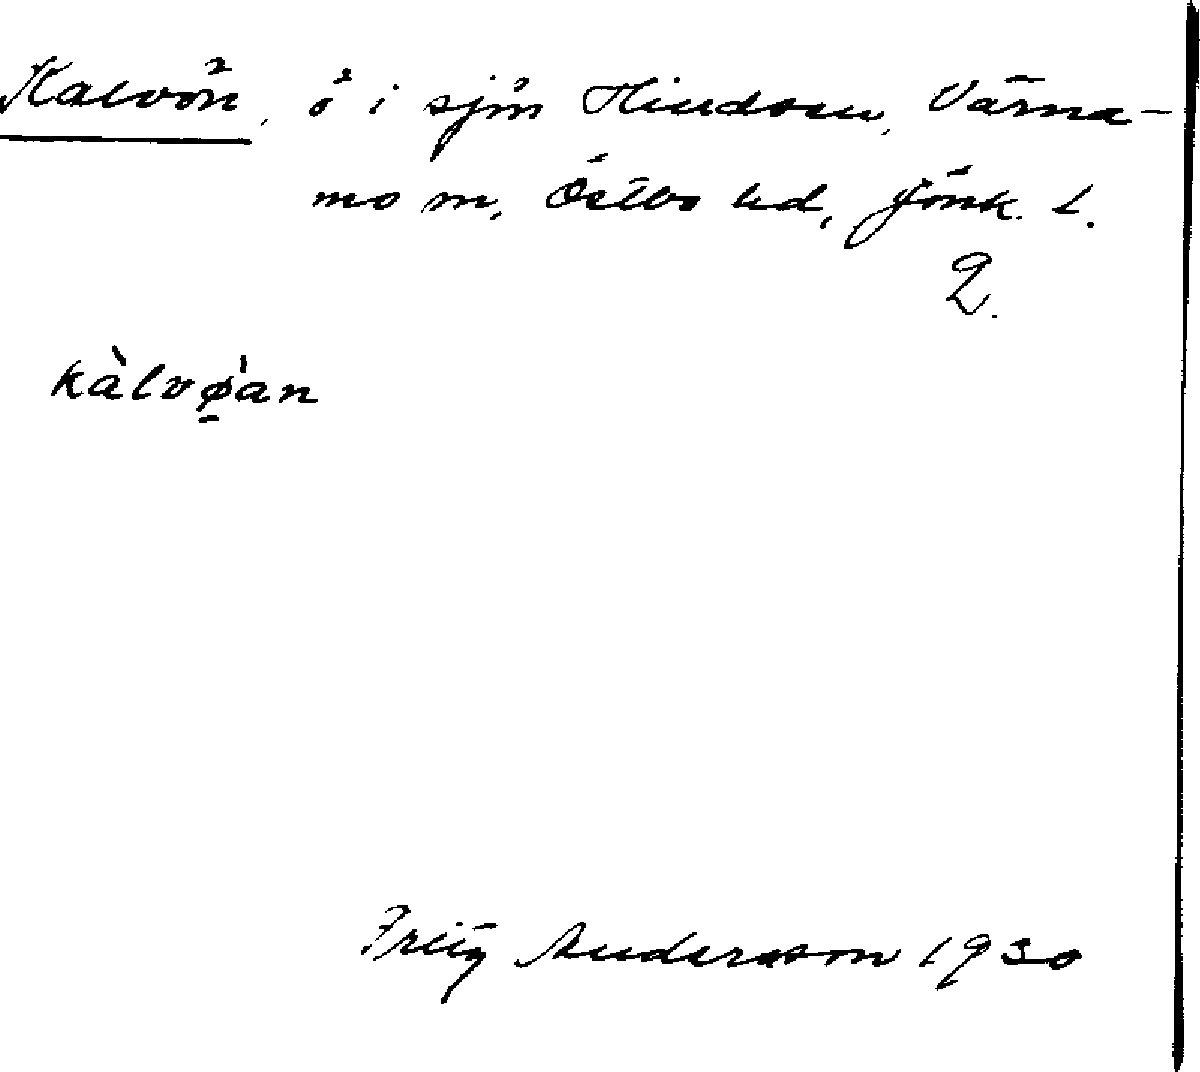 Kalvön, ö i sjön Hindsen, Värna-
mo sn, Östbo hd, Jönk. l.
2.
kàlvø̀an
Fritz Andersson 1930